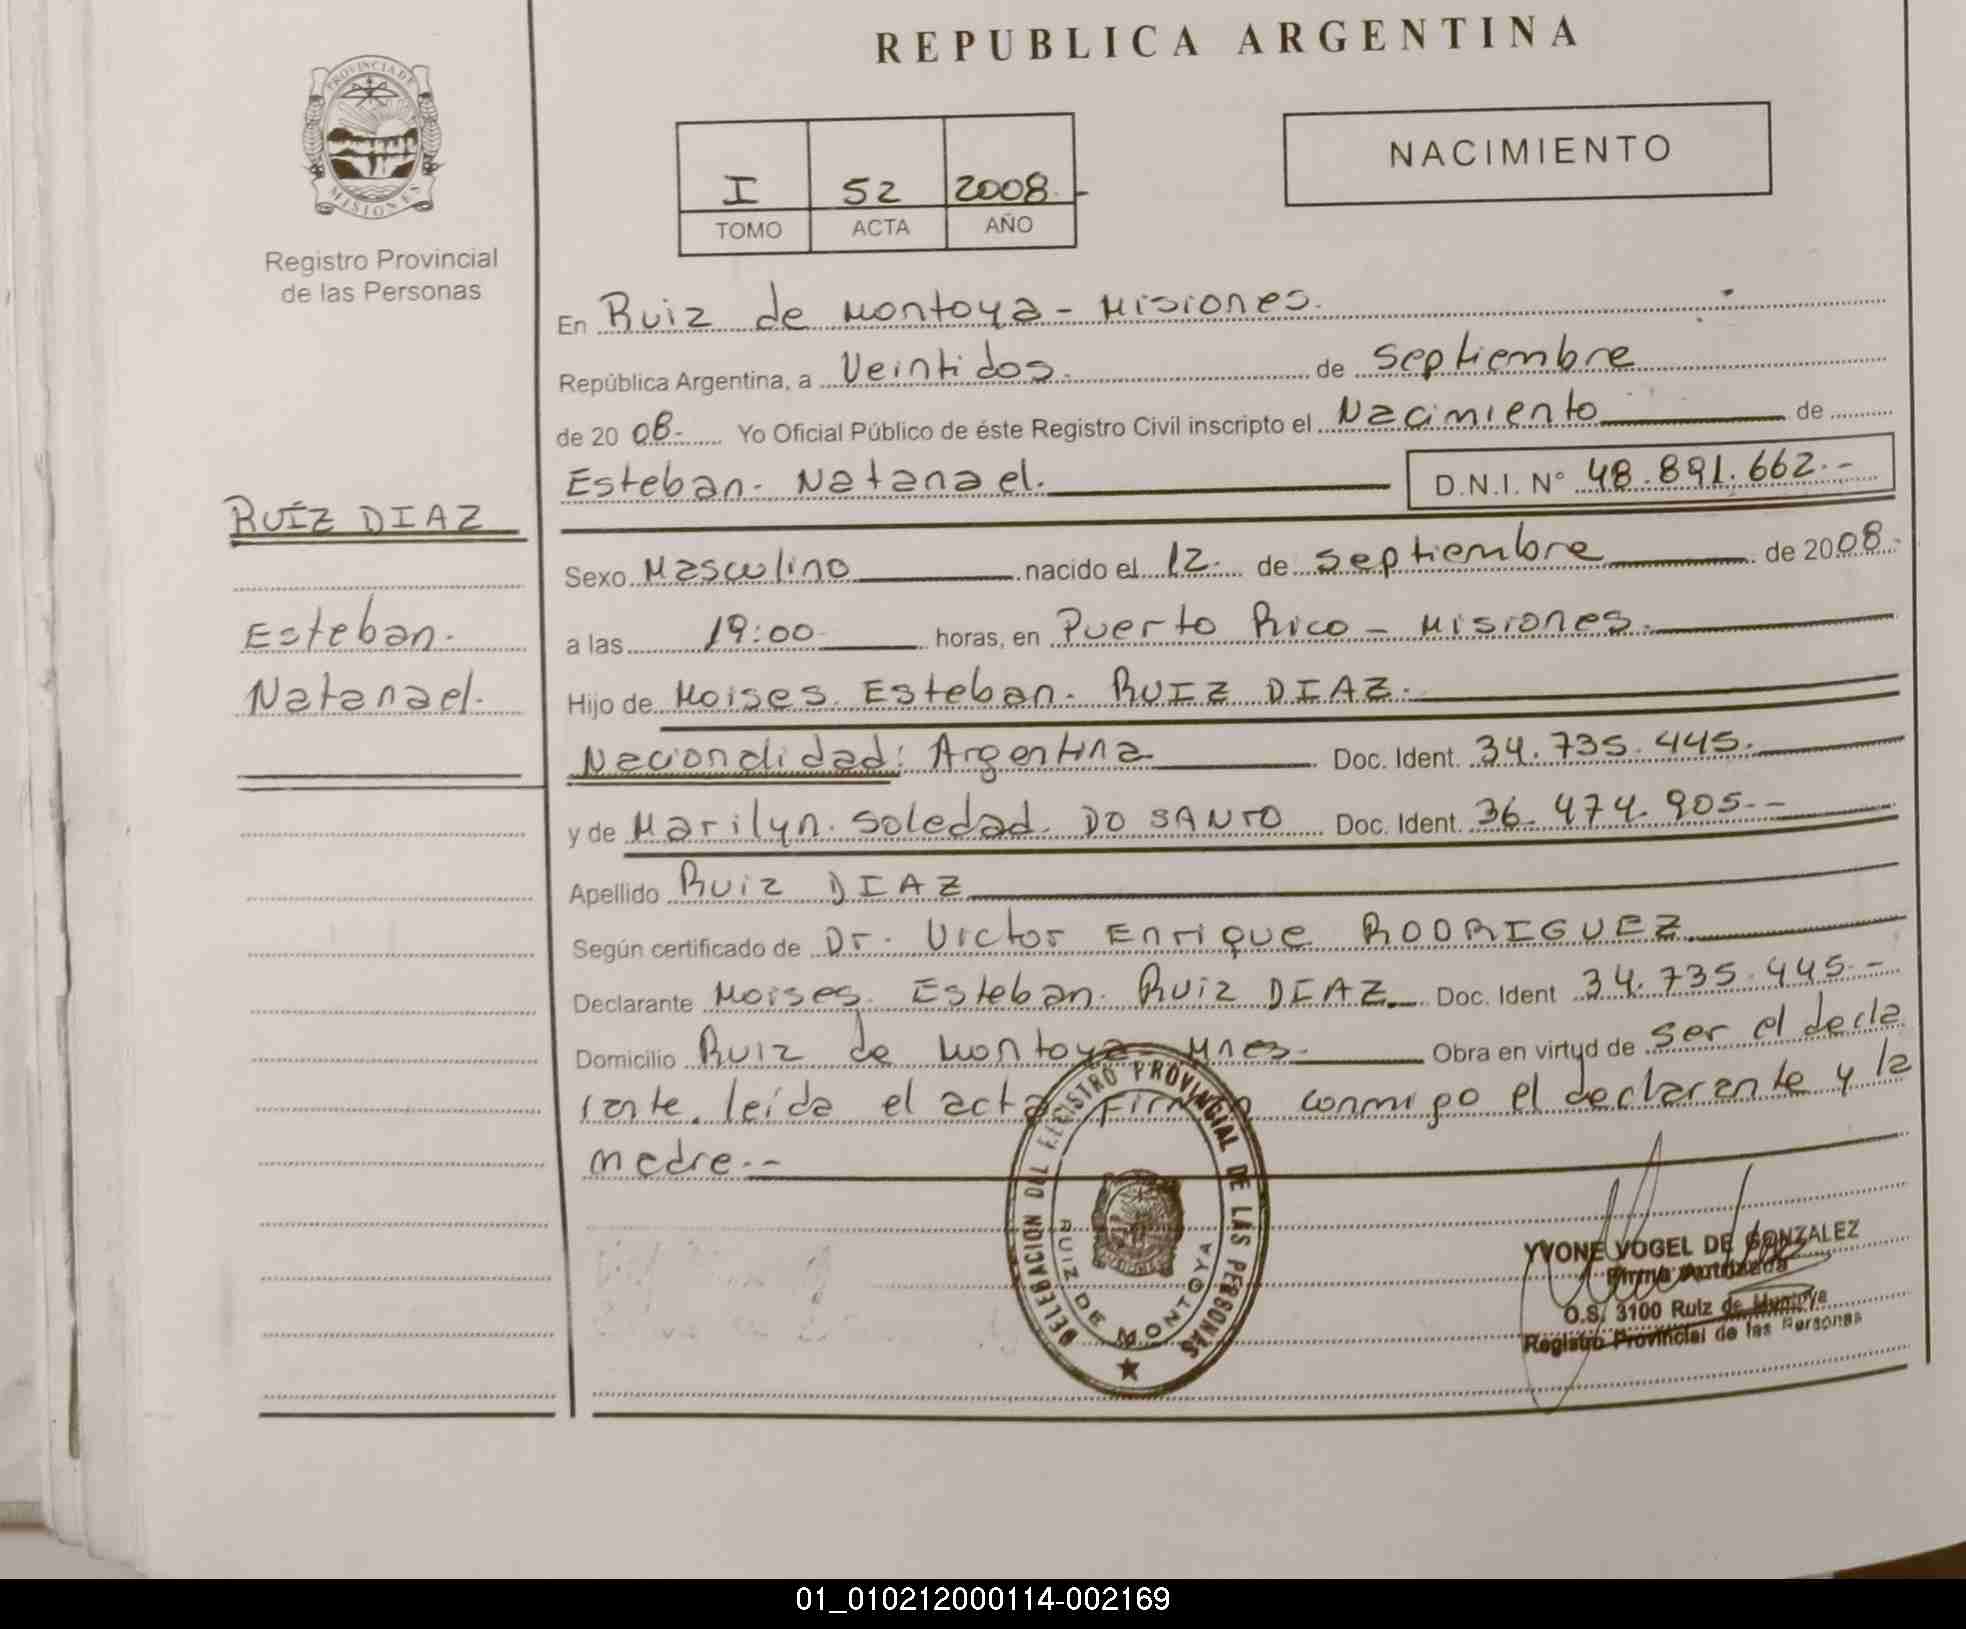 REPUBLICA ARGENTINA
PROVINCIA DE
MISIONES
Registro Provincial
de las Personas
I 52 2008.-
TOMO ACTA AÑO
NACIMIENTO
En Ruiz de Montoya - Misiones.
República Argentina, a Veintidos. de Septiembre
de 20 08.- Yo Oficial Público de éste Registro Civil inscripto el Nacimiento de
Esteban. Natanael. D.N.I. N° 48.891.662.-
RUÍZ DIAZ
Esteban.
Natanael.
Sexo Masculino nacido el 12. de Septiembre de 2008.-
a las 19:00 horas, en Puerto Rico - Misiones.
Hijo de Moises. Esteban. RUIZ DIAZ.
Nacionalidad: Argentina Doc. Ident. 34.735.445.
y de Marilyn. Soledad. DO SANTO Doc. Ident. 36.474.905.--
Apellido Ruiz DIAZ
Según certificado de Dr. Victor Enrique RODRIGUEZ
Declarante Moises. Esteban. Ruiz DIAZ Doc. Ident 34.735.445.-
Domicilio Ruiz de Montoya - Mnes. Obra en virtud de ser el decla
rante. leída el acta firman conmigo el declarante y la
madre.--
DELEGACION DEL REGISTRO PROVINCIAL DE LAS PERSONAS
RUIZ DE MONTOYA
YVONE VOGEL DE GONZALEZ
Firma Autorizada
O.S. 3100 Ruiz de Montoya
Registro Provincial de las Personas
01_010212000114-002169